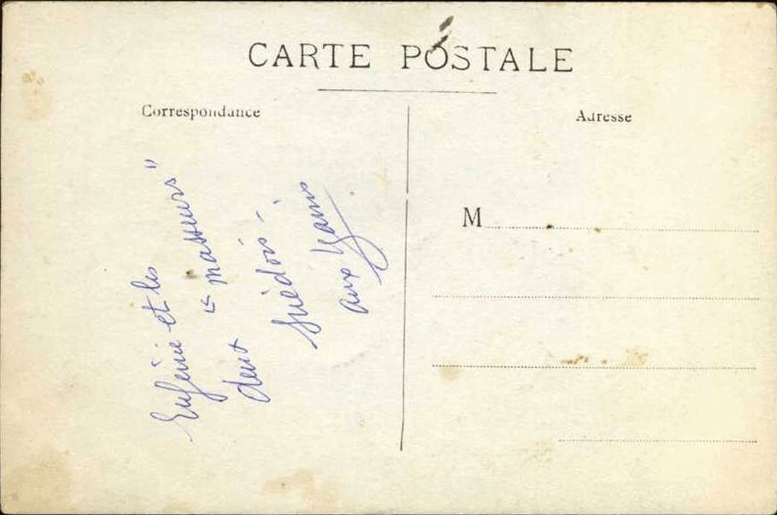 CARTE POSTALE
Correspondance
Adresse
M
Eugénie et les
"masseurs"
deux
suédois
aux bains